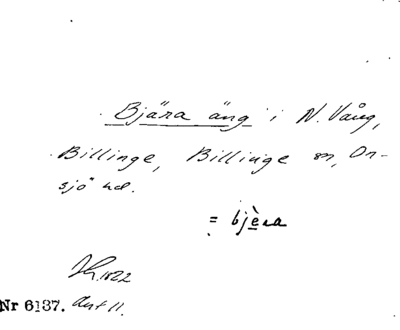 Bjära äng i N. Vång,
Billinge, Billinge sn, On-
sjö hd.
= bjèra
1822
Nr 6137. Ant 11.